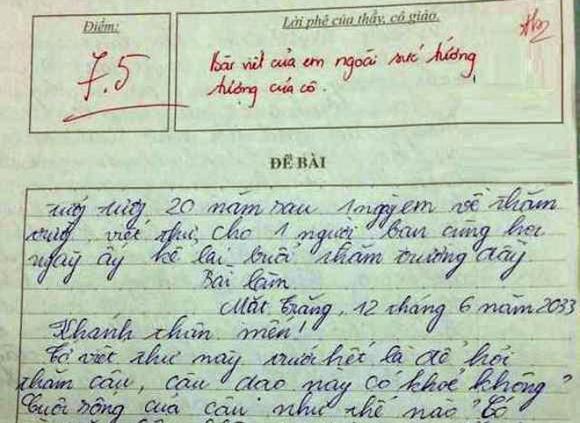 Điểm:
Lời phê của thầy, cô giáo.
7.5
Bài viết của em ngoài sức tưởng
tượng của cô.
ĐỀ BÀI
tưởng tượng 20 năm sau 1 ngày em về thăm
trường viết thư cho 1 người bạn cùng học
ngày ấy kể lại buổi thăm trường đầy
Bài làm
Mặt Trăng, 12 tháng 6 năm 2033
Khanh thân mến!
Tớ viết thư này trước hết là để hỏi
thăm cậu, cậu dạo này có khoẻ không?
Cuộc sống của cậu như thế nào? Tớ